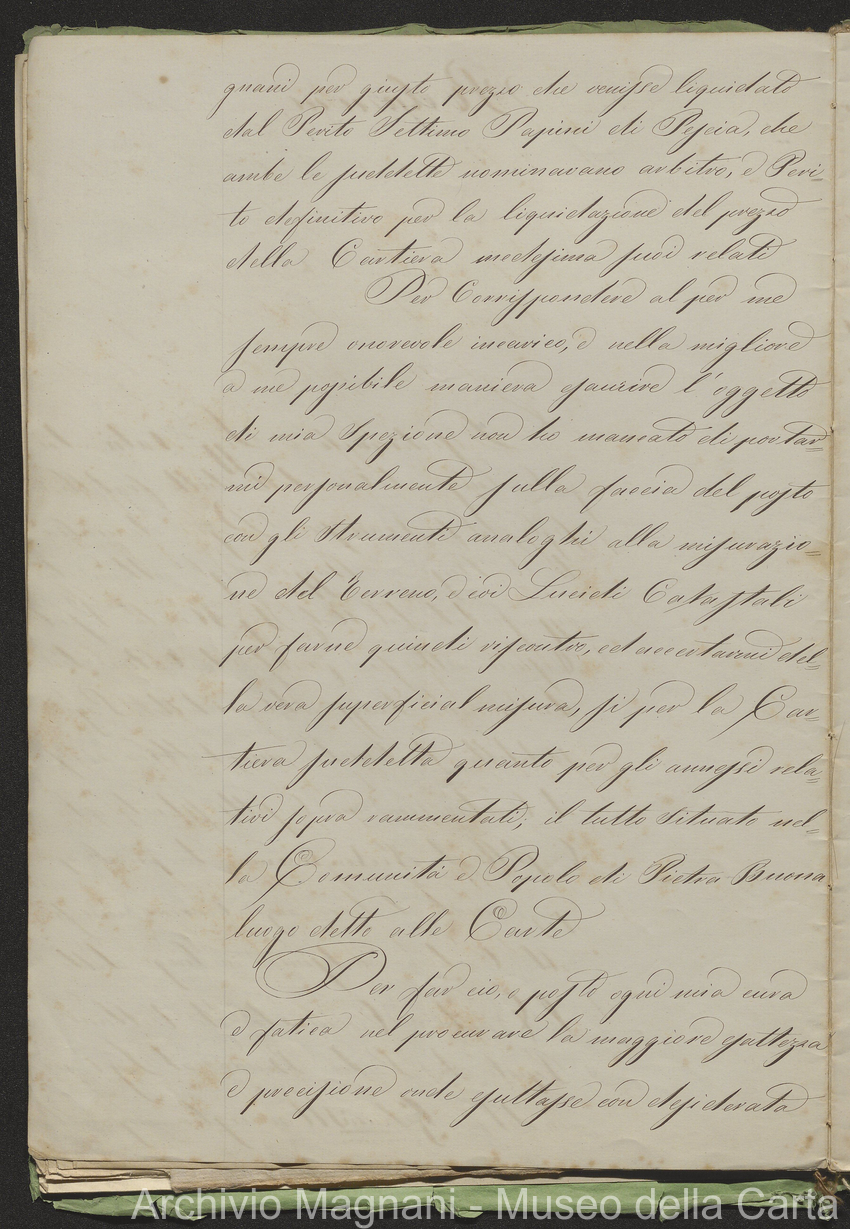 gnani per giusto prezzo che venisse liquidato
dal Perito Settimo Papini di Pescia, che
ambe le suddette nominavano arbitro, e Peri=
to definitivo per la liquidazione del prezzo
della Cartiera medesima suoi relati
Per Corrispondere al per me
sempre onorevole incarico, e nella migliore
a me possibile maniera esaurire l'oggetto
di mia Spezione non ho mancato di portar=
mi personalmente sulla faccia del posto
con gli Strumenti analoghi alla misurazio=
ne del Terreno, e coi Lucidi Catastali
per farne quindi riscontro, ed accertarmi del=
la vera superficial misura, si per la Car=
tiera suddetta quanto per gli annessi rela=
tivi sopra rammentati; il tutto Situato nel=
la Comunità e Popolo di Pietra Buona
luogo detto alle Carte
Per far cio, o posto ogni mia cura
e fatica nel procurare la maggiore esattezza
e precisione onde esultasse con desiderata
Archivio Magnani - Museo della Carta